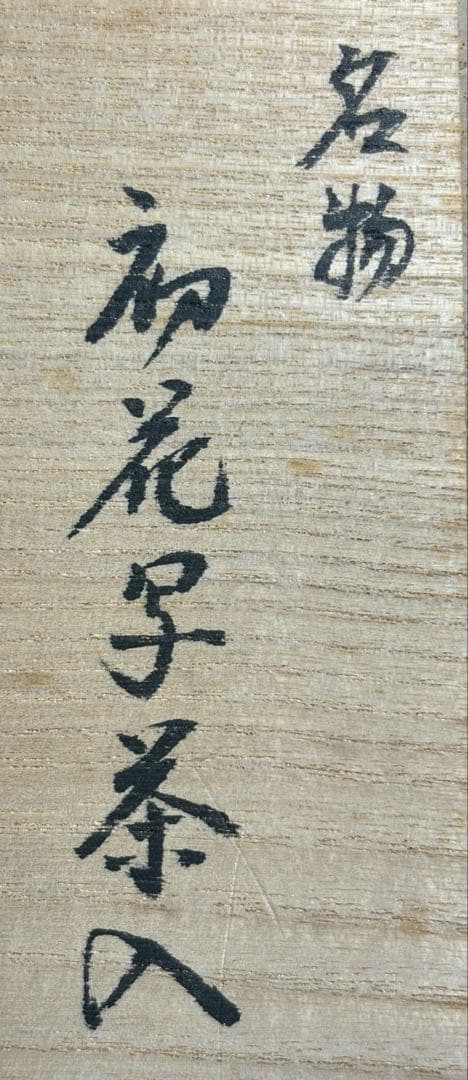 名物
初花写茶入